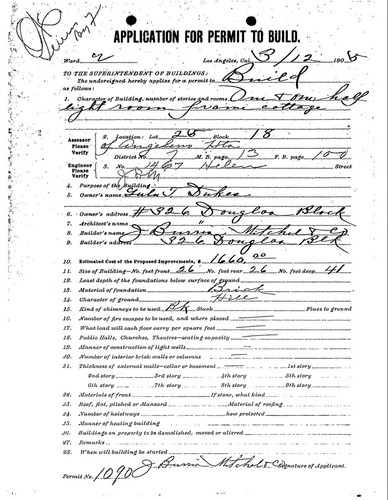 OK
APPLICATION FOR PERMIT TO BUILD.
Ward 2 Los Angeles, Cal. 3/12 1905
TO THE SUPERINTENDENT OF BUILDINGS:
The undersigned hereby applies for a permit to Build
as follows:
1. Character of Building, number of stories and rooms One & one half
eight room frame cottage
Assessor Please Verify
2. Location: Lot 25 Block 18
of Angeleno Hts
District No. 7 M. B. page 13 F. B. page 100
Engineer Please Verify
3. No. 1467 Helen Street
4. Purpose of the Building
5. Owner's name Lula T Dukes
6. Owner's address # 326 Douglas Block
7. Architect's name " "
8. Builder's name J Burris Mitchel & Co
9. Builder's address 326 Douglas Blk
10. Estimated Cost of the Proposed Improvements, $ 1660.00
11. Size of Building—No. feet front 26 No. feet rear 26 No. feet deep 41
12. Least depth of the foundations below surface of ground
13. Material of foundation Brick
14. Character of ground Hill
15. Kind of chimneys to be used Bk Stock Flues to ground
16. Number of fire escapes to be used, and where placed
17. What load will each floor carry per square foot
18. Public Halls, Churches, Theatres—seating capacity
19. Manner of construction of light wells
20. Number of interior brick walls or columns
21. Thickness of external walls—cellar or basement 1st story
2nd story 3rd story 4th story 5th story
6th story 7th story 8th story 9th story
22. Materials of front If stone, what kind
23. Roof, flat, pitched or Mansard Material of roofing
24. Number of heistways how protected
25. Manner of heating building
26. Buildings on property to be demolished, moved or altered
27. Remarks
28. When will building be started
Permit No. 1090 J Burris Mitchel & Co Signature of Applicant.